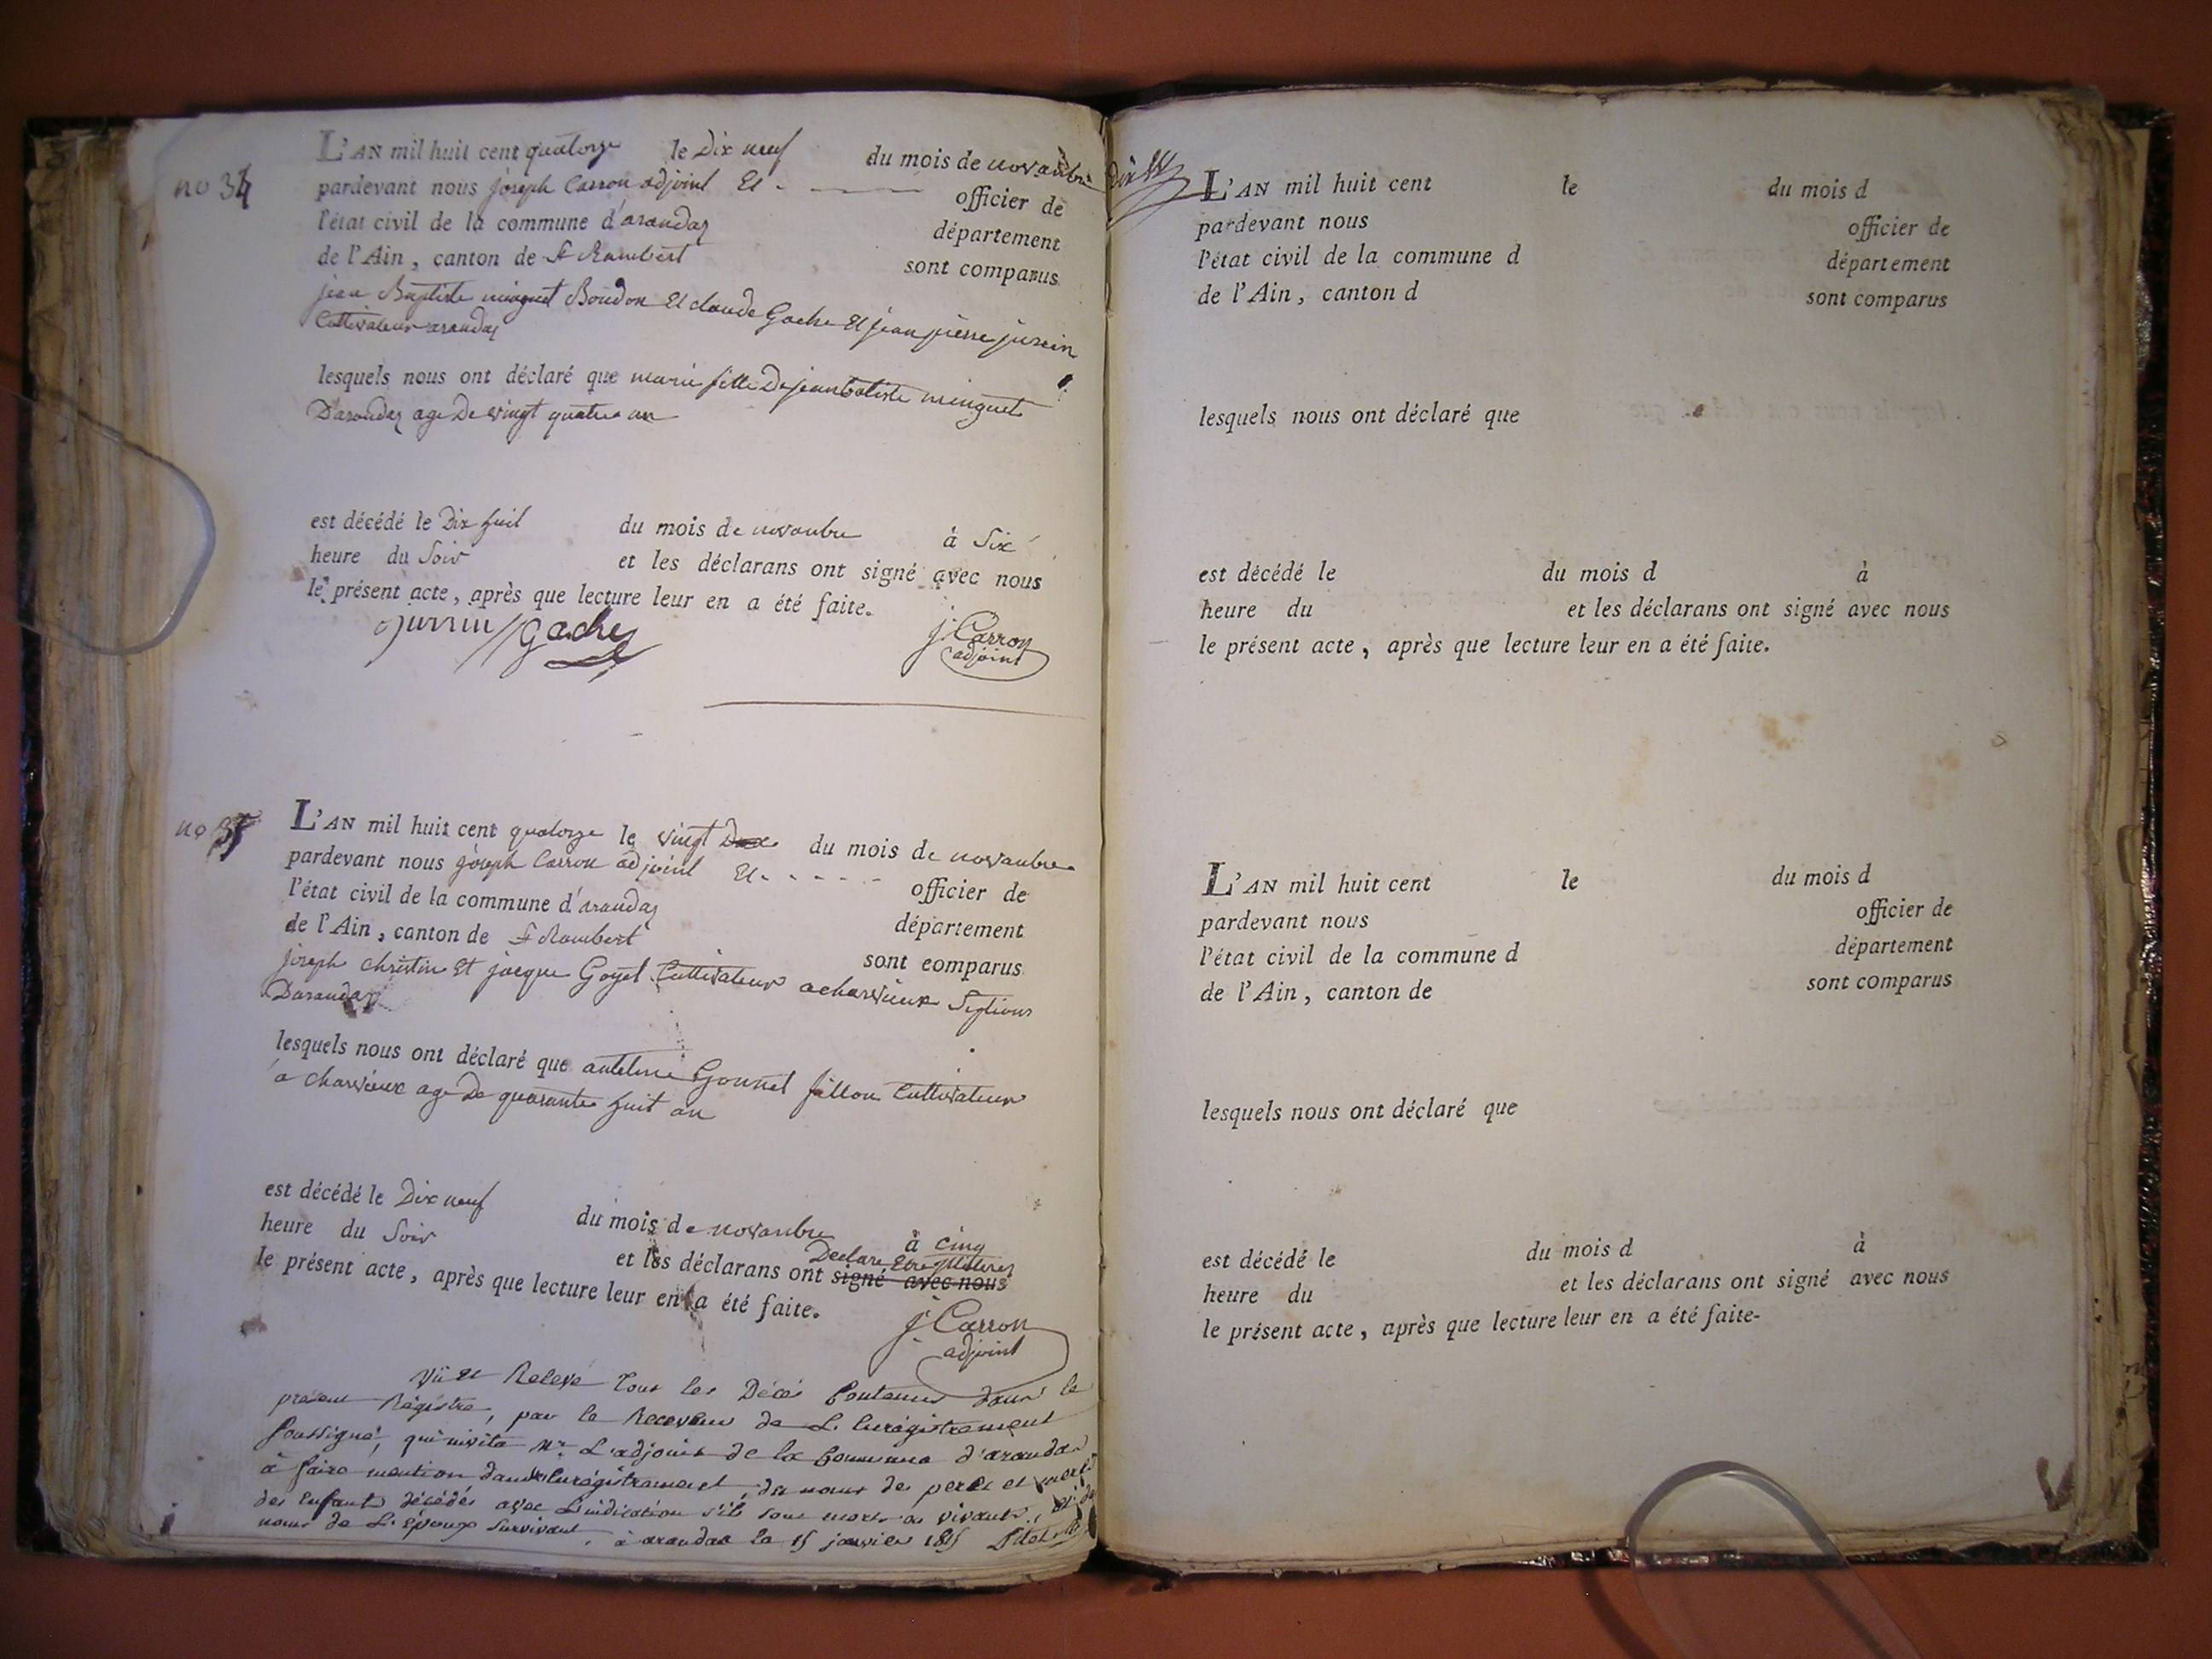 no 34
L'AN mil huit cent quatorze le Dix neuf du mois de novanbre
pardevant nous joseph Carron adjoint Et officier de
l'état civil de la commune d'arandas département
de l'Ain, canton de St Rambert sont comparus
jean Baptiste minguet Boudon Et claude Gache Et jean pierre jurrin
Cultivateur arandas
lesquels nous ont déclaré que marie fille De jean batiste minguet
D'arandas age De vingt quatre an
est décédé le Dix huit du mois de novanbre à Six
heure du Soir et les déclarans ont signé avec nous
le présent acte, après que lecture leur en a été faite.
jurrin Gache j. Carron
adjoint
no 35
L'AN mil huit cent quatorze le vingt du mois de novanbre
pardevant nous joseph Carron adjoint Et officier de
l'état civil de la commune d'arandas département
de l'Ain, canton de St Rambert sont comparus
joseph christin Et jacque Goyet Cultivateur a charvieux
Darandas
lesquels nous ont déclaré que antelme Gonnet fillon Cultivateur
a charvieux age De quarante huit an
est décédé le Dix neuf du mois de novanbre à cinq
heure du Soir et les déclarans ont signé avec nous Declare Etre
le présent acte, après que lecture leur en a été faite.
j. Carron
adjoint
Vü et Relevé Tous les Décés Contenus dans le
présent Régistre, par le Receveur de L'enrégistrement
Soussigné, qui invite Mr L'adjoint de la Commune d'arandas
à faire mention dans l'enrégistrement, des noms des peres et meres
des Enfants décédés avec L'indication s'ils sont morts ou vivants, et du
nom de L'Epoux Survivant. à arandas le 15 janvier 1815
L'AN mil huit cent le du mois d
pardevant nous officier de
l'état civil de la commune d département
de l'Ain, canton d sont comparus
lesquels nous ont déclaré que
est décédé le du mois d à
heure du et les déclarans ont signé avec nous
le présent acte, après que lecture leur en a été faite.
L'AN mil huit cent le du mois d
pardevant nous officier de
l'état civil de la commune d département
de l'Ain, canton de sont comparus
lesquels nous ont déclaré que
est décédé le du mois d à
heure du et les déclarans ont signé avec nous
le présent acte, après que lecture leur en a été faite-